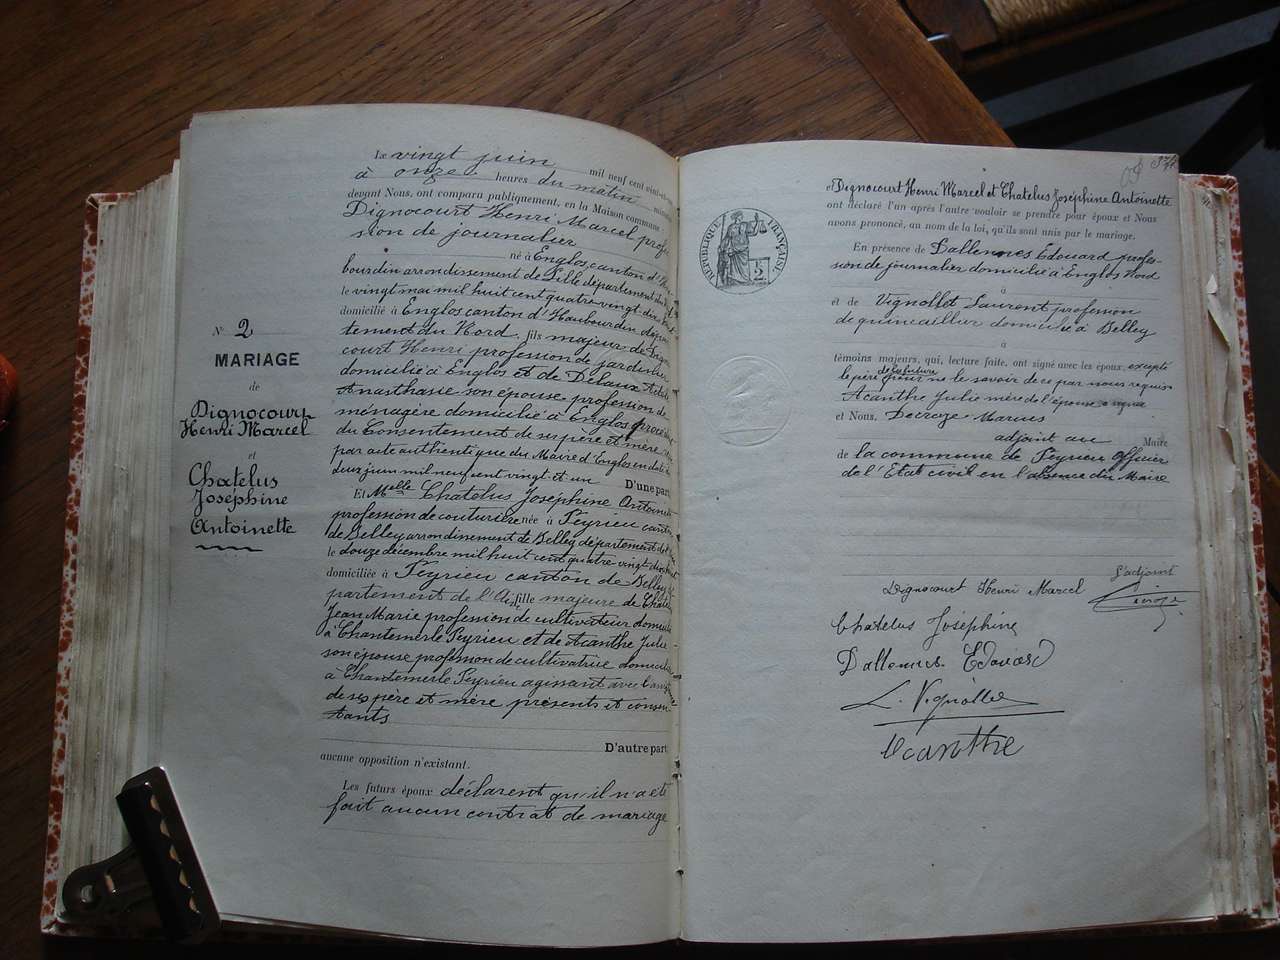 Le vingt juin mil neuf cent vingt
à onze heures du matin minutes
devant Nous, ont comparu publiquement, en la Maison commune
Dignocourt Henri Marcel profes
sion de journalier
né à Englos canton d'Hau
bourdin arrondissement de Lille département du
le vingt mai mil huit cent quatre vingt
domicilié à Englos canton d'Haubourdin dépar
tement du Nord, fils majeur de Digno
court Henri profession de jardinier
domicilié à Englos et de
Anasthasie son épouse profession de
ménagère domicilié à Englos
du Consentement de ses père et mère
par acte authentique du Maire d'Englos en date du
deux juin mil neuf cent vingt et un
D'une part
Et Melle Chatelus Joséphine Antoinette
profession de couturière née à Peyrieu canton
de Belley arrondissement de Belley département de
le douze décembre mil huit cent quatre vingt dix
domiciliée à Peyrieu canton de Belley dé
partement de l'Ain, fille majeure de Chatelus
Jean Marie profession de cultivateur domicilié
à Chantemerle Peyrieu et de Acanthe Julie
son épouse profession de cultivatrice domiciliée
à Chantemerle Peyrieu agissant avec
de ses père et mère présents et consen
tants
D'autre part
aucune opposition n'existant.
Les futurs époux déclarent qu'il n'a été
fait aucun contrat de mariage
No 2
MARIAGE
de
Dignocourt
Henri Marcel
et
Chatelus
Joséphine
Antoinette
RÉPUBLIQUE FRANÇAISE
2F
et Dignocourt Henri Marcel et Chatelus Joséphine Antoinette
ont déclaré l'un après l'autre vouloir se prendre pour époux et Nous
avons prononcé, au nom de la loi, qu'ils sont unis par le mariage.
En présence de Dallennes Edouard profes-
sion de journalier domicilié à Englos Nord
à
et de Vignollet Laurent profession
de quincaillier domicilié à Belley
à
témoins majeurs, qui, lecture faite, ont signé avec les époux, excepté
de la future
le père pour ne le savoir de ce par nous requis
Acanthe Julie mère de l'épouse a signé
et Nous, Decroze Marius
adjoint au Maire
de la commune de Peyrieu Officier
de l'Etat civil en l'absence du Maire
L'adjoint
Dignocourt Henri Marcel
Decroze
Chatelus Joséphine
Dallennes Edouard
L. Vignollet
Acanthe